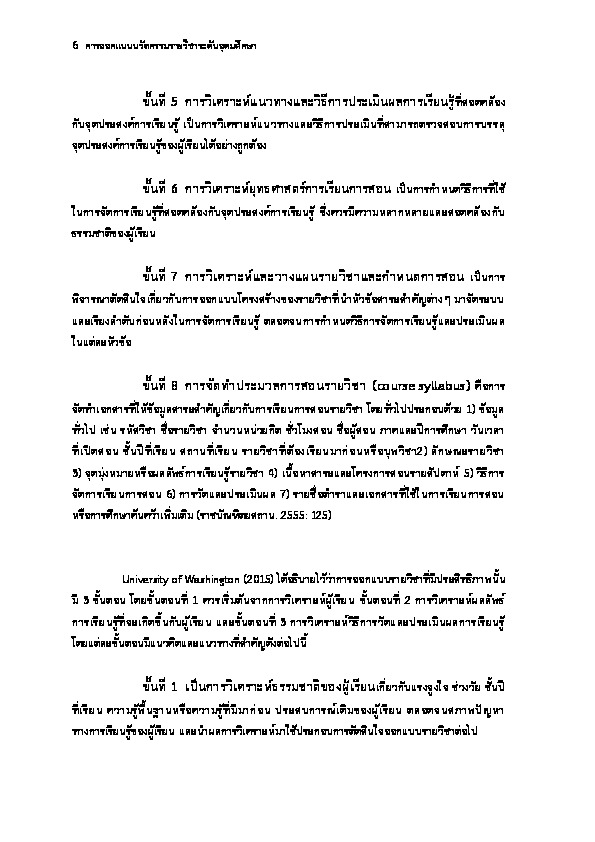 6 การออกแบบนวัตกรรมรายวิชาระดับอุดมศึกษา
ขั้นที่ 5 การวิเคราะห์แนวทางและวิธีการประเมินผลการเรียนรู้ที่สอดคล้อง
กับจุดประสงค์การเรียนรู้ เป็นการวิเคราะห์แนวทางและวิธีการประเมินที่สามารถตรวจสอบการบรรลุ
จุดประสงค์การเรียนรู้ของผู้เรียนได้อย่างถูกต้อง
ขั้นที่ 6 การวิเคราะห์ยุทธศาสตร์การเรียนการสอน เป็นการกำหนดวิธีการที่ใช้
ในการจัดการเรียนรู้ที่สอดคล้องกับจุดประสงค์การเรียนรู้ ซึ่งควรมีความหลากหลายและสอดคล้องกับ
ธรรมชาติของผู้เรียน
ขั้นที่ 7 การวิเคราะห์และวางแผนรายวิชาและกำหนดการสอน เป็นการ
พิจารณาตัดสินใจเกี่ยวกับการออกแบบโครงสร้างของรายวิชาที่นำหัวข้อสาระสำคัญต่างๆ มาจัดระบบ
และเรียงลำดับก่อนหลังในการจัดการเรียนรู้ ตลอดจนการกำหนดวิธีการจัดการเรียนรู้และประเมินผล
ในแต่ละหัวข้อ
ขั้นที่ 8 การจัดทำประมวลการสอนรายวิชา (course syllabus) คือการ
จัดทำเอกสารที่ให้ข้อมูลสาระสำคัญเกี่ยวกับการเรียนการสอนรายวิชา โดยทั่วไปประกอบด้วย 1) ข้อมูล
ทั่วไป เช่น รหัสวิชา ชื่อรายวิชา จำนวนหน่วยกิต ชั่วโมงสอน ชื่อผู้สอน ภาคและปีการศึกษา วันเวลา
ที่เปิดสอน ชั้นปีที่เรียน สถานที่เรียน รายวิชาที่ต้องเรียนมาก่อนหรือบุพวิชา2) ลักษณะรายวิชา
3) จุดมุ่งหมายหรือผลลัพธ์การเรียนรู้รายวิชา 4) เนื้อหาสาระและโครงการสอนรายสัปดาห์ 5) วิธีการ
จัดการเรียนการสอน 6) การวัดและประเมินผล 7) รายชื่อตำราและเอกสารที่ใช้ในการเรียนการสอน
หรือการศึกษาค้นคว้าเพิ่มเติม (ราชบัณฑิตยสถาน. 2555: 125)
University of Washington (2015) ได้อธิบายไว้ว่าการออกแบบรายวิชาที่มีประสิทธิภาพนั้น
มี 3 ขั้นตอน โดยขั้นตอนที่ 1 ควรเริ่มต้นจากการวิเคราะห์ผู้เรียน ขั้นตอนที่ 2 การวิเคราะห์ผลลัพธ์
การเรียนรู้ที่จะเกิดขึ้นกับผู้เรียน และขั้นตอนที่ 3 การวิเคราะห์วิธีการวัดและประเมินผลการเรียนรู้
โดยแต่ละขั้นตอนมีแนวคิดและแนวทางที่สำคัญดังต่อไปนี้
ขั้นที่ 1 เป็นการวิเคราะห์ธรรมชาติของผู้เรียนเกี่ยวกับแรงจูงใจ ช่วงวัย ชั้นปี
ที่เรียน ความรู้พื้นฐานหรือความรู้ที่มีมาก่อน ประสบการณ์เดิมของผู้เรียน ตลอดจนสภาพปัญหา
ทางการเรียนรู้ของผู้เรียน และนำผลการวิเคราะห์มาใช้ประกอบการตัดสินใจออกแบบรายวิชาต่อไป